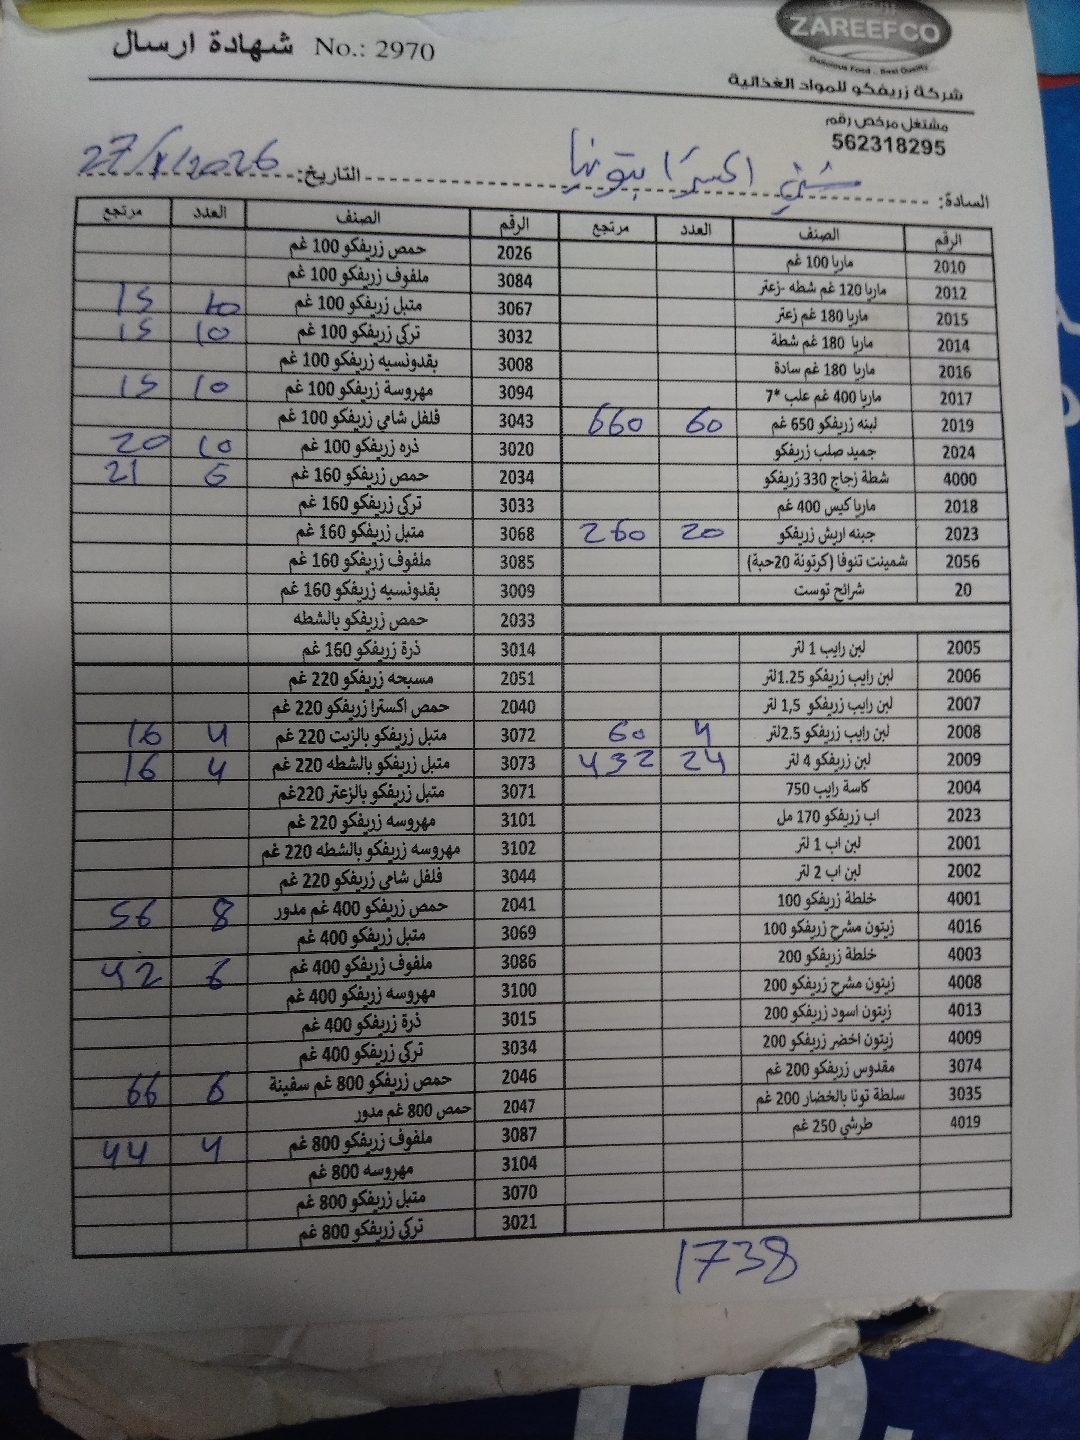 ZAREEFCO
Delicious Food .. Best Quality
شهادة ارسال No.: 2970
شركة زريفكو للمواد الغذائية
مشتغل مرخص رقم
562318295
السادة: بيتونيا
التاريخ: 27/1/2026
الرقم الصنف العدد مرتجع
2010 ماريا 100 غم
2012 ماريا 120 غم شطه -زعتر
2015 ماريا 180 غم زعتر
2014 ماريا 180 غم شطة
2016 ماريا 180 غم سادة
2017 ماريا 400 غم علب *7
2019 لبنه زريفكو 650 غم 60 660
2024 جميد صلب زريفكو
4000 شطة زجاج 330 زريفكو
2018 ماريا كيس 400 غم
2023 جبنه اربش زريفكو 20 260
2056 شمينت تنوفا (كرتونة 20حبة)
20 شرائح توست
2005 لبن رايب 1 لتر
2006 لبن رايب زريفكو 1.25لتر
2007 لبن رايب زريفكو 1,5 لتر
2008 لبن رايب زريفكو 2.5لتر 4 60
2009 لبن زريفكو 4 لتر 24 432
2004 كاسة رايب 750
2023 اب زريفكو 170 مل
2001 لبن اب 1 لتر
2002 لبن اب 2 لتر
4001 خلطة زريفكو 100
4016 زيتون مشرح زريفكو 100
4003 خلطة زريفكو 200
4008 زيتون مشرح زريفكو 200
4013 زيتون اسود زريفكو 200
4009 زيتون اخضر زريفكو 200
3074 مقدوس زريفكو 200 غم
3035 سلطة تونا بالخضار 200 غم
4019 طرشي 250 غم
الرقم الصنف العدد مرتجع
2026 حمص زريفكو 100 غم
3084 ملفوف زريفكو 100 غم
3067 متبل زريفكو 100 غم 10 15
3032 تركي زريفكو 100 غم 10 15
3008 بقدونسيه زريفكو 100 غم
3094 مهروسة زريفكو 100 غم 10 15
3043 فلفل شامي زريفكو 100 غم
3020 ذره زريفكو 100 غم 10 20
2034 حمص زريفكو 160 غم 6 21
3033 تركي زريفكو 160 غم
3068 متبل زريفكو 160 غم
3085 ملفوف زريفكو 160 غم
3009 بقدونسيه زريفكو 160 غم
2033 حمص زريفكو بالشطه
3014 ذرة زريفكو 160 غم
2051 مسبحه زريفكو 220 غم
2040 حمص اكسترا زريفكو 220 غم
3072 متبل زريفكو بالزيت 220 غم 4 16
3073 متبل زريفكو بالشطه 220 غم 4 16
3071 متبل زريفكو بالزعتر 220غم
3101 مهروسه زريفكو 220 غم
3102 مهروسه زريفكو بالشطه 220 غم
3044 فلفل شامي زريفكو 220 غم
2041 حمص زريفكو 400 غم مدور 8 56
3069 متبل زريفكو 400 غم
3086 ملفوف زريفكو 400 غم 6 42
3100 مهروسه زريفكو 400 غم
3015 ذرة زريفكو 400 غم
3034 تركي زريفكو 400 غم
2046 حمص زريفكو 800 غم سفينة 6 66
2047 حمص 800 غم مدور
3087 ملفوف زريفكو 800 غم 4 44
3104 مهروسه 800 غم
3070 متبل زريفكو 800 غم
3021 تركي زريفكو 800 غم
1738